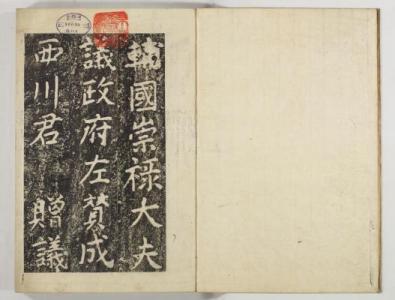 輔國崇祿大夫
議政府左贊成
西川君 贈議